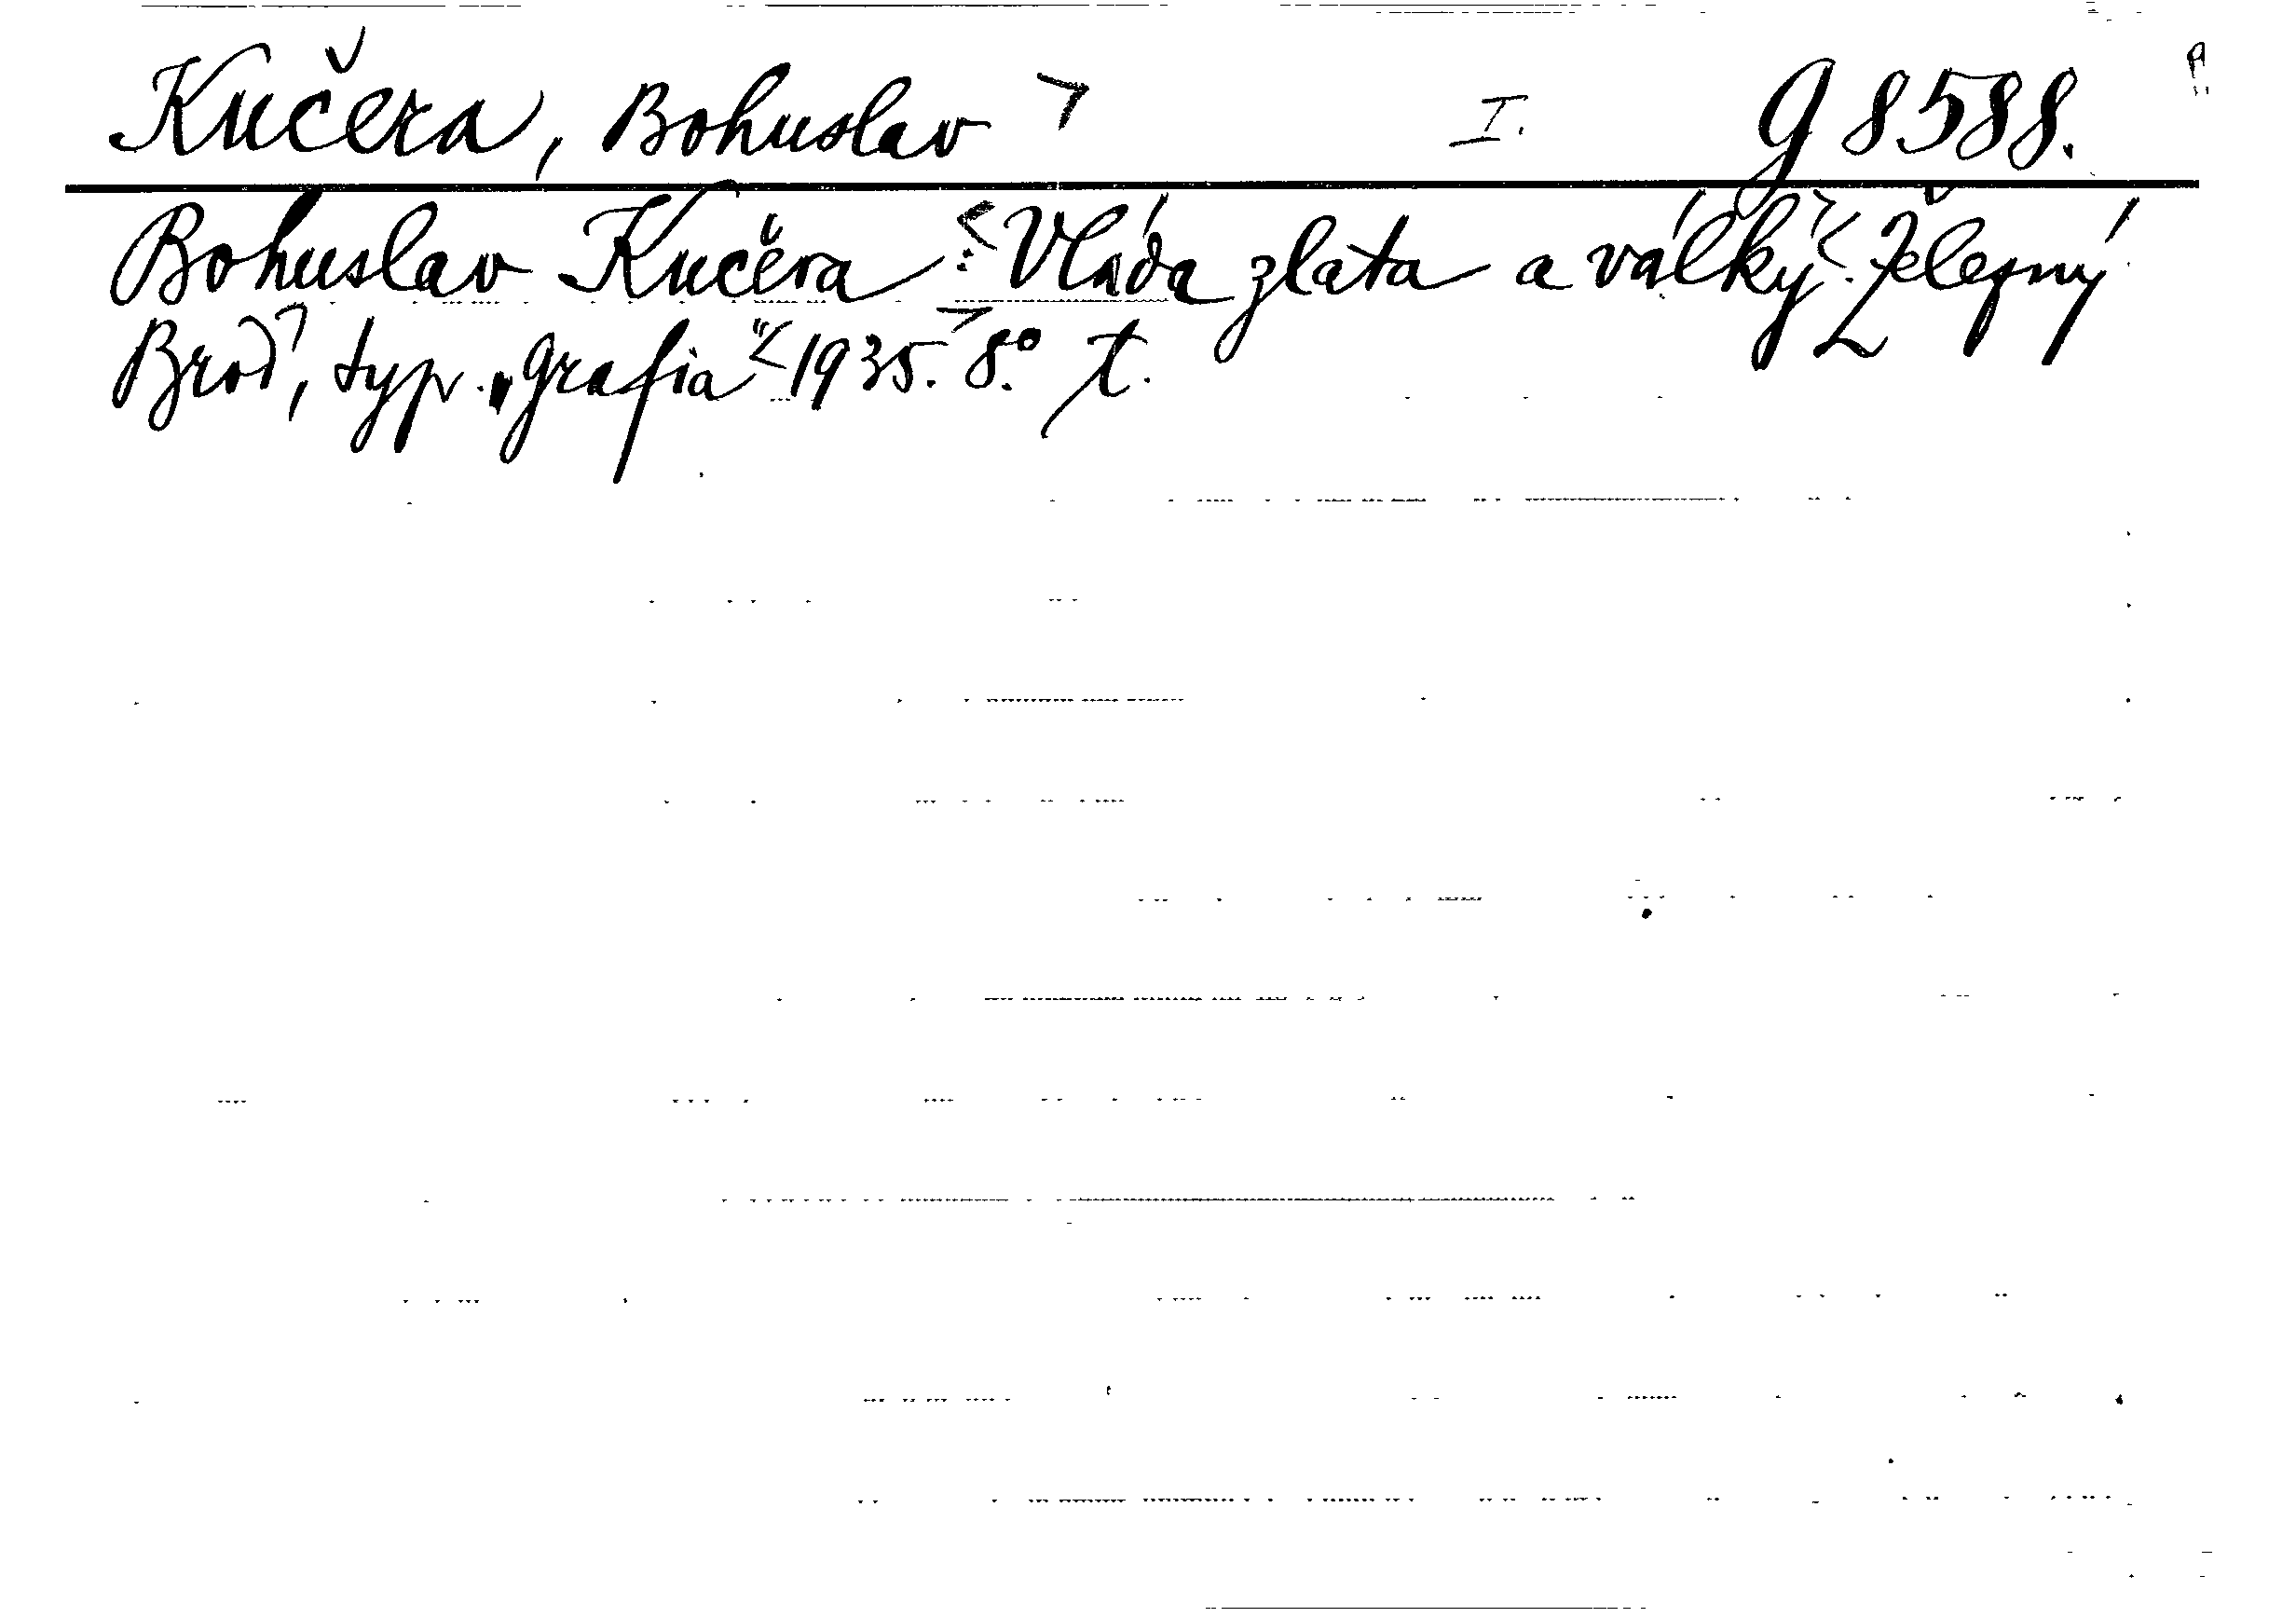 Kučera, Bohuslav I. g 8588.
Bohuslav Kučera: Vláda zlata a války. Železný
Brod, typ. „Grafia“ 1935. 8.° t.